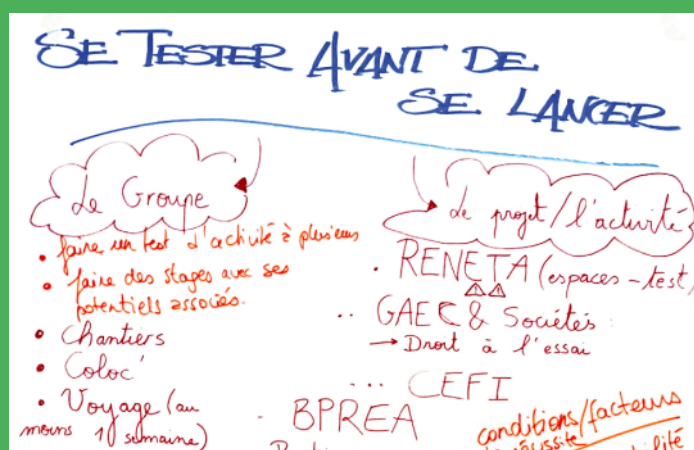 SE TESTER AVANT DE
SE LANCER
Le Groupe
• faire un test d'activité à plusieurs
• faire des stages avec ses
potentiels associés.
• Chantiers
• Coloc'
• Voyage (au
moins 1 semaine)
Le projet/l'activité
. RENETA (espaces-test)
.. GAEC & Sociétés :
→ Droit à l'essai
... CEFI
- BPREA
conditions/facteurs
réussite